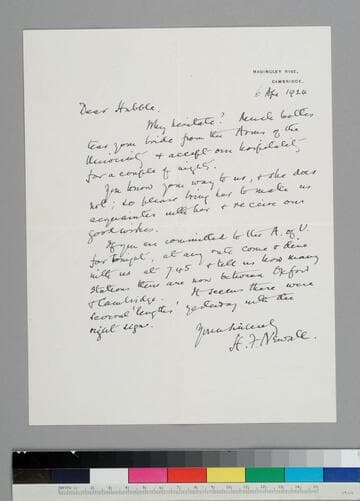 MADINGLEY RISE,
CAMBRIDGE.
5 Apr 1924
Dear Hubble.
Why hesitate? Much better
tear your bride from the Arms of the
University & accept our hospitality
for a couple of nights.
You know your way to us, & she does
not; so please bring her to make us
acquainted with her & receive our
good wishes.
If you are committed to the A. of U.
for tonight, at any rate come & dine
with us at 7.45 & tell us how many
stations there are now between Oxford
& Cambridge. It seems there were
several 'lengths' yesterday with the
right sign.
Yours sincerely
H. F. Newall.